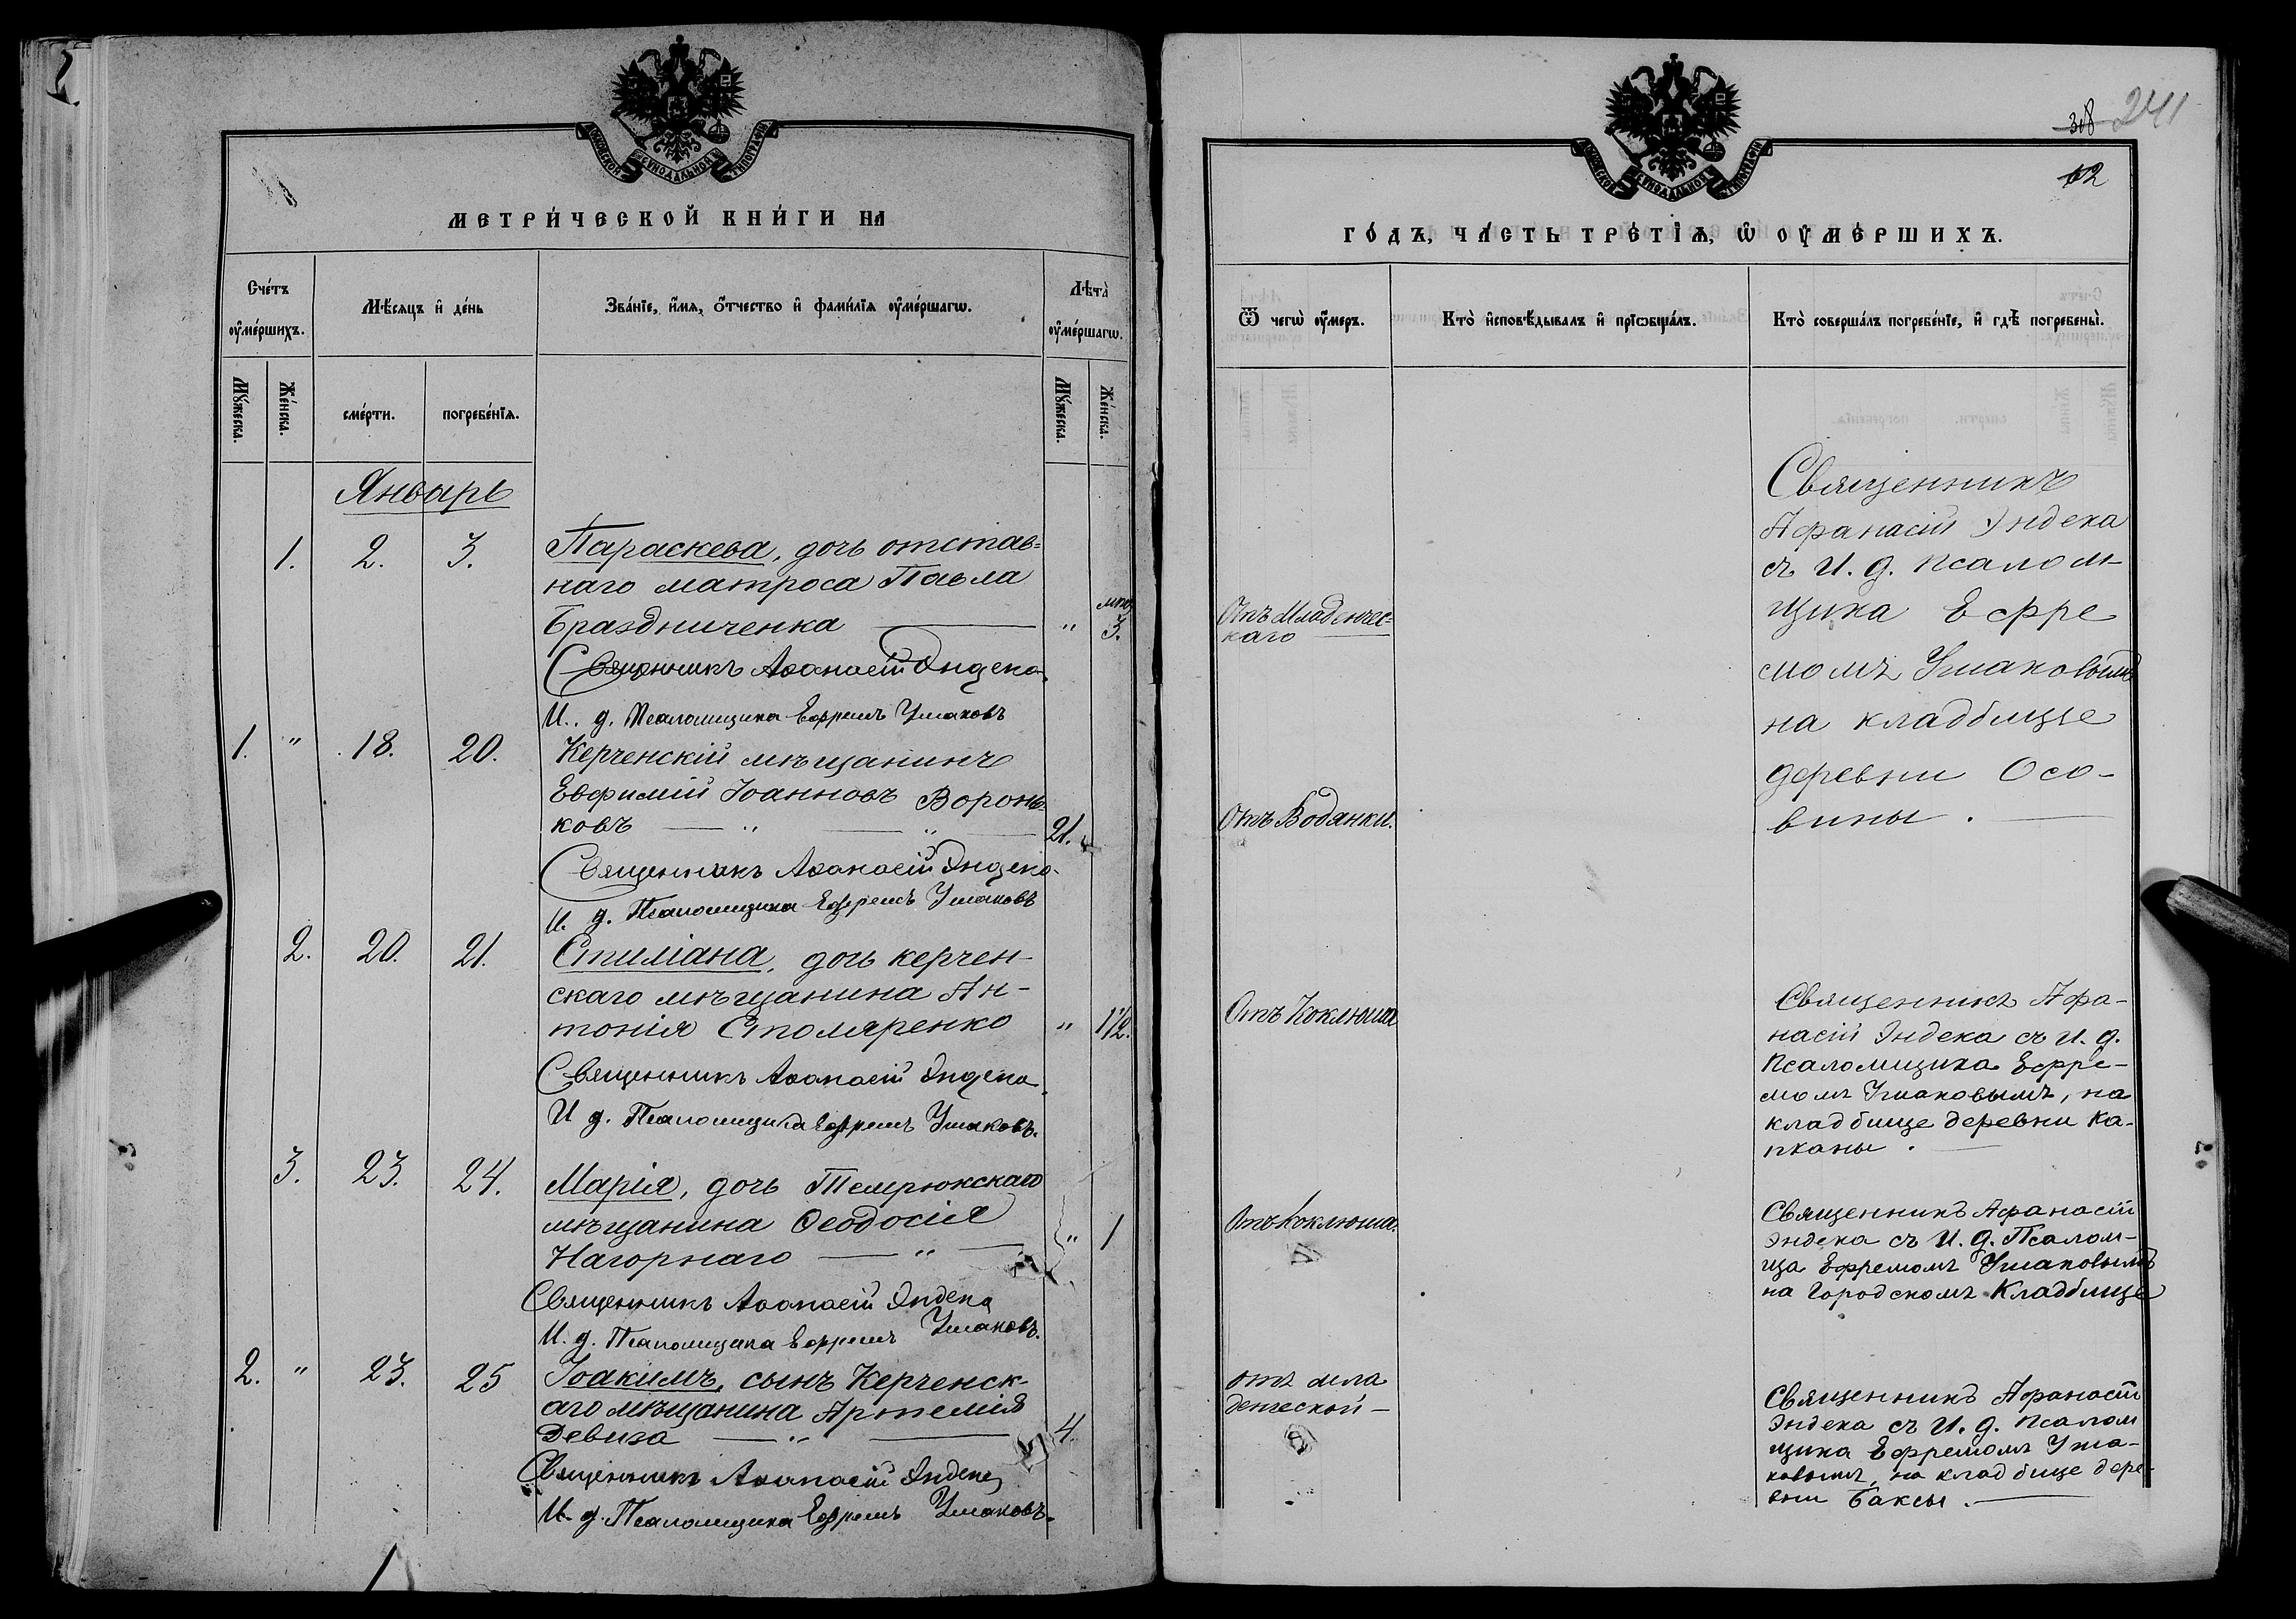 МОСКОВСКОЙ СѴНОДАЛЬНОЙ ТИПОГРАФІИ
МЕТРИ́ЧЕСКОЙ КНИ́ГИ НА
Сче́тъ
оу҆ме́ршихъ.
Мѣ́сяцъ и҆ де́нь
Зва́нїе, и҆́мѧ, ѻ҆́тчество и҆ фами́лїѧ оу҆ме́ршагѡ.
Лѣта̀
оу҆ме́ршагѡ.
Мꙋ́жеска.
Же́нска.
сме́рти.
погребе́нїѧ.
Мꙋ́жеска.
Же́нска.
Январь
1. 2. 3. Параскева, дочь отстав=
наго матроса Павла
Браздниченка — " 3.
Священникъ Аѳанасій Эндека.
И. д. Псаломщика Ефремъ Ушаковъ
1. " 18. 20. Керченскій мѣщанинъ
Евфимій Іоанновъ Воронь-
ковъ — " — " — 21.
Священникъ Аѳанасій Эндека.
И. д. Псаломщика Ефремъ Ушаковъ
2. 20. 21. Стиліана, дочь керчен-
скаго мѣщанина Ан-
тонія Столяренко " 1½.
Священникъ Аѳанасій Эндека.
И д. Псаломщика Ефремъ Ушаковъ.
3. 23. 24. Марія, дочь Темрюкскаго
мѣщанина Ѳеодосія
Нагорнаго — " — " 1
Священникъ Аѳанасій Эндека
И. д. Псаломщика Ефремъ Ушаковъ.
2. " 23. 25 Іоакимъ, сынъ Керченск-
аго мѣщанина Артемія
Девиза — " — 4.
Священникъ Аѳанасій Эндека
И. д. Псаломщика Ефремъ Ушаковъ.
318 241
МОСКОВСКОЙ СѴНОДАЛЬНОЙ ТИПОГРАФІИ
62
ГО́ДЪ, ЧА́СТЬ ТРЕ́ТЇѦ, Ѡ҆ ОУ҆МЕ́РШИХЪ.
Ѿ чегѡ̀ оу҆́меръ.
Кто̀ и҆сповѣ́дывалъ и҆ прїѡбща́лъ.
Кто̀ соверша́лъ погребе́нїе, и҆ гдѣ̀ погребены̀.
Отъ Младенчес-
каго —
Священникъ
Афанасій Эндека
съ И. д. псалом-
щика Ефре
момъ Ушаковымъ
на кладбище
деревни Осо-
вины. —
Отъ Водянки.
Отъ Коклюша
Священникъ Афа-
насій Эндека съ И. д.
Псаломщика Ефре-
момъ Ушаковымъ, на
кладбище деревни Ка-
пканы. —
Отъ Коклюша.
Священникъ Афанасій
Эндека съ И. д. Псалом-
ща Ефремомъ Ушаковымъ
на Городскомъ Кладбище
отъ мла
денческой —
Священникъ Афанасій
Эндека съ И. д. псалом
щика Ефремомъ Уша-
ковымъ, на кладбище дере-
вни Баксы. —